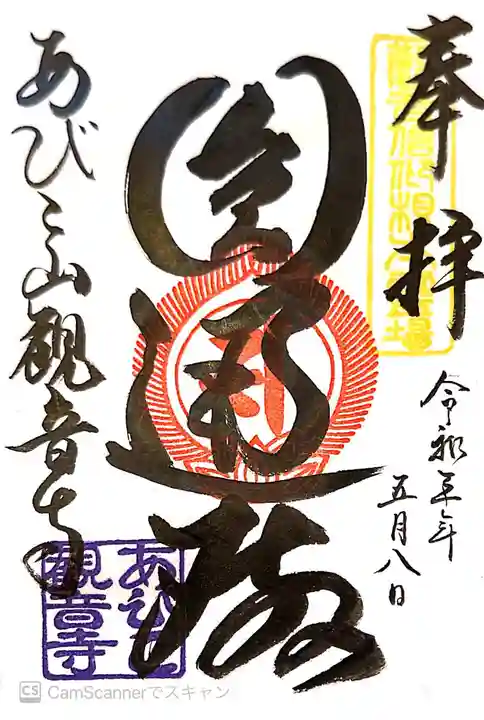 奉拝
令和五年
五月八日
圓通殿
あびこ山観音寺
あびこ
観音寺
CS CamScannerでスキャン